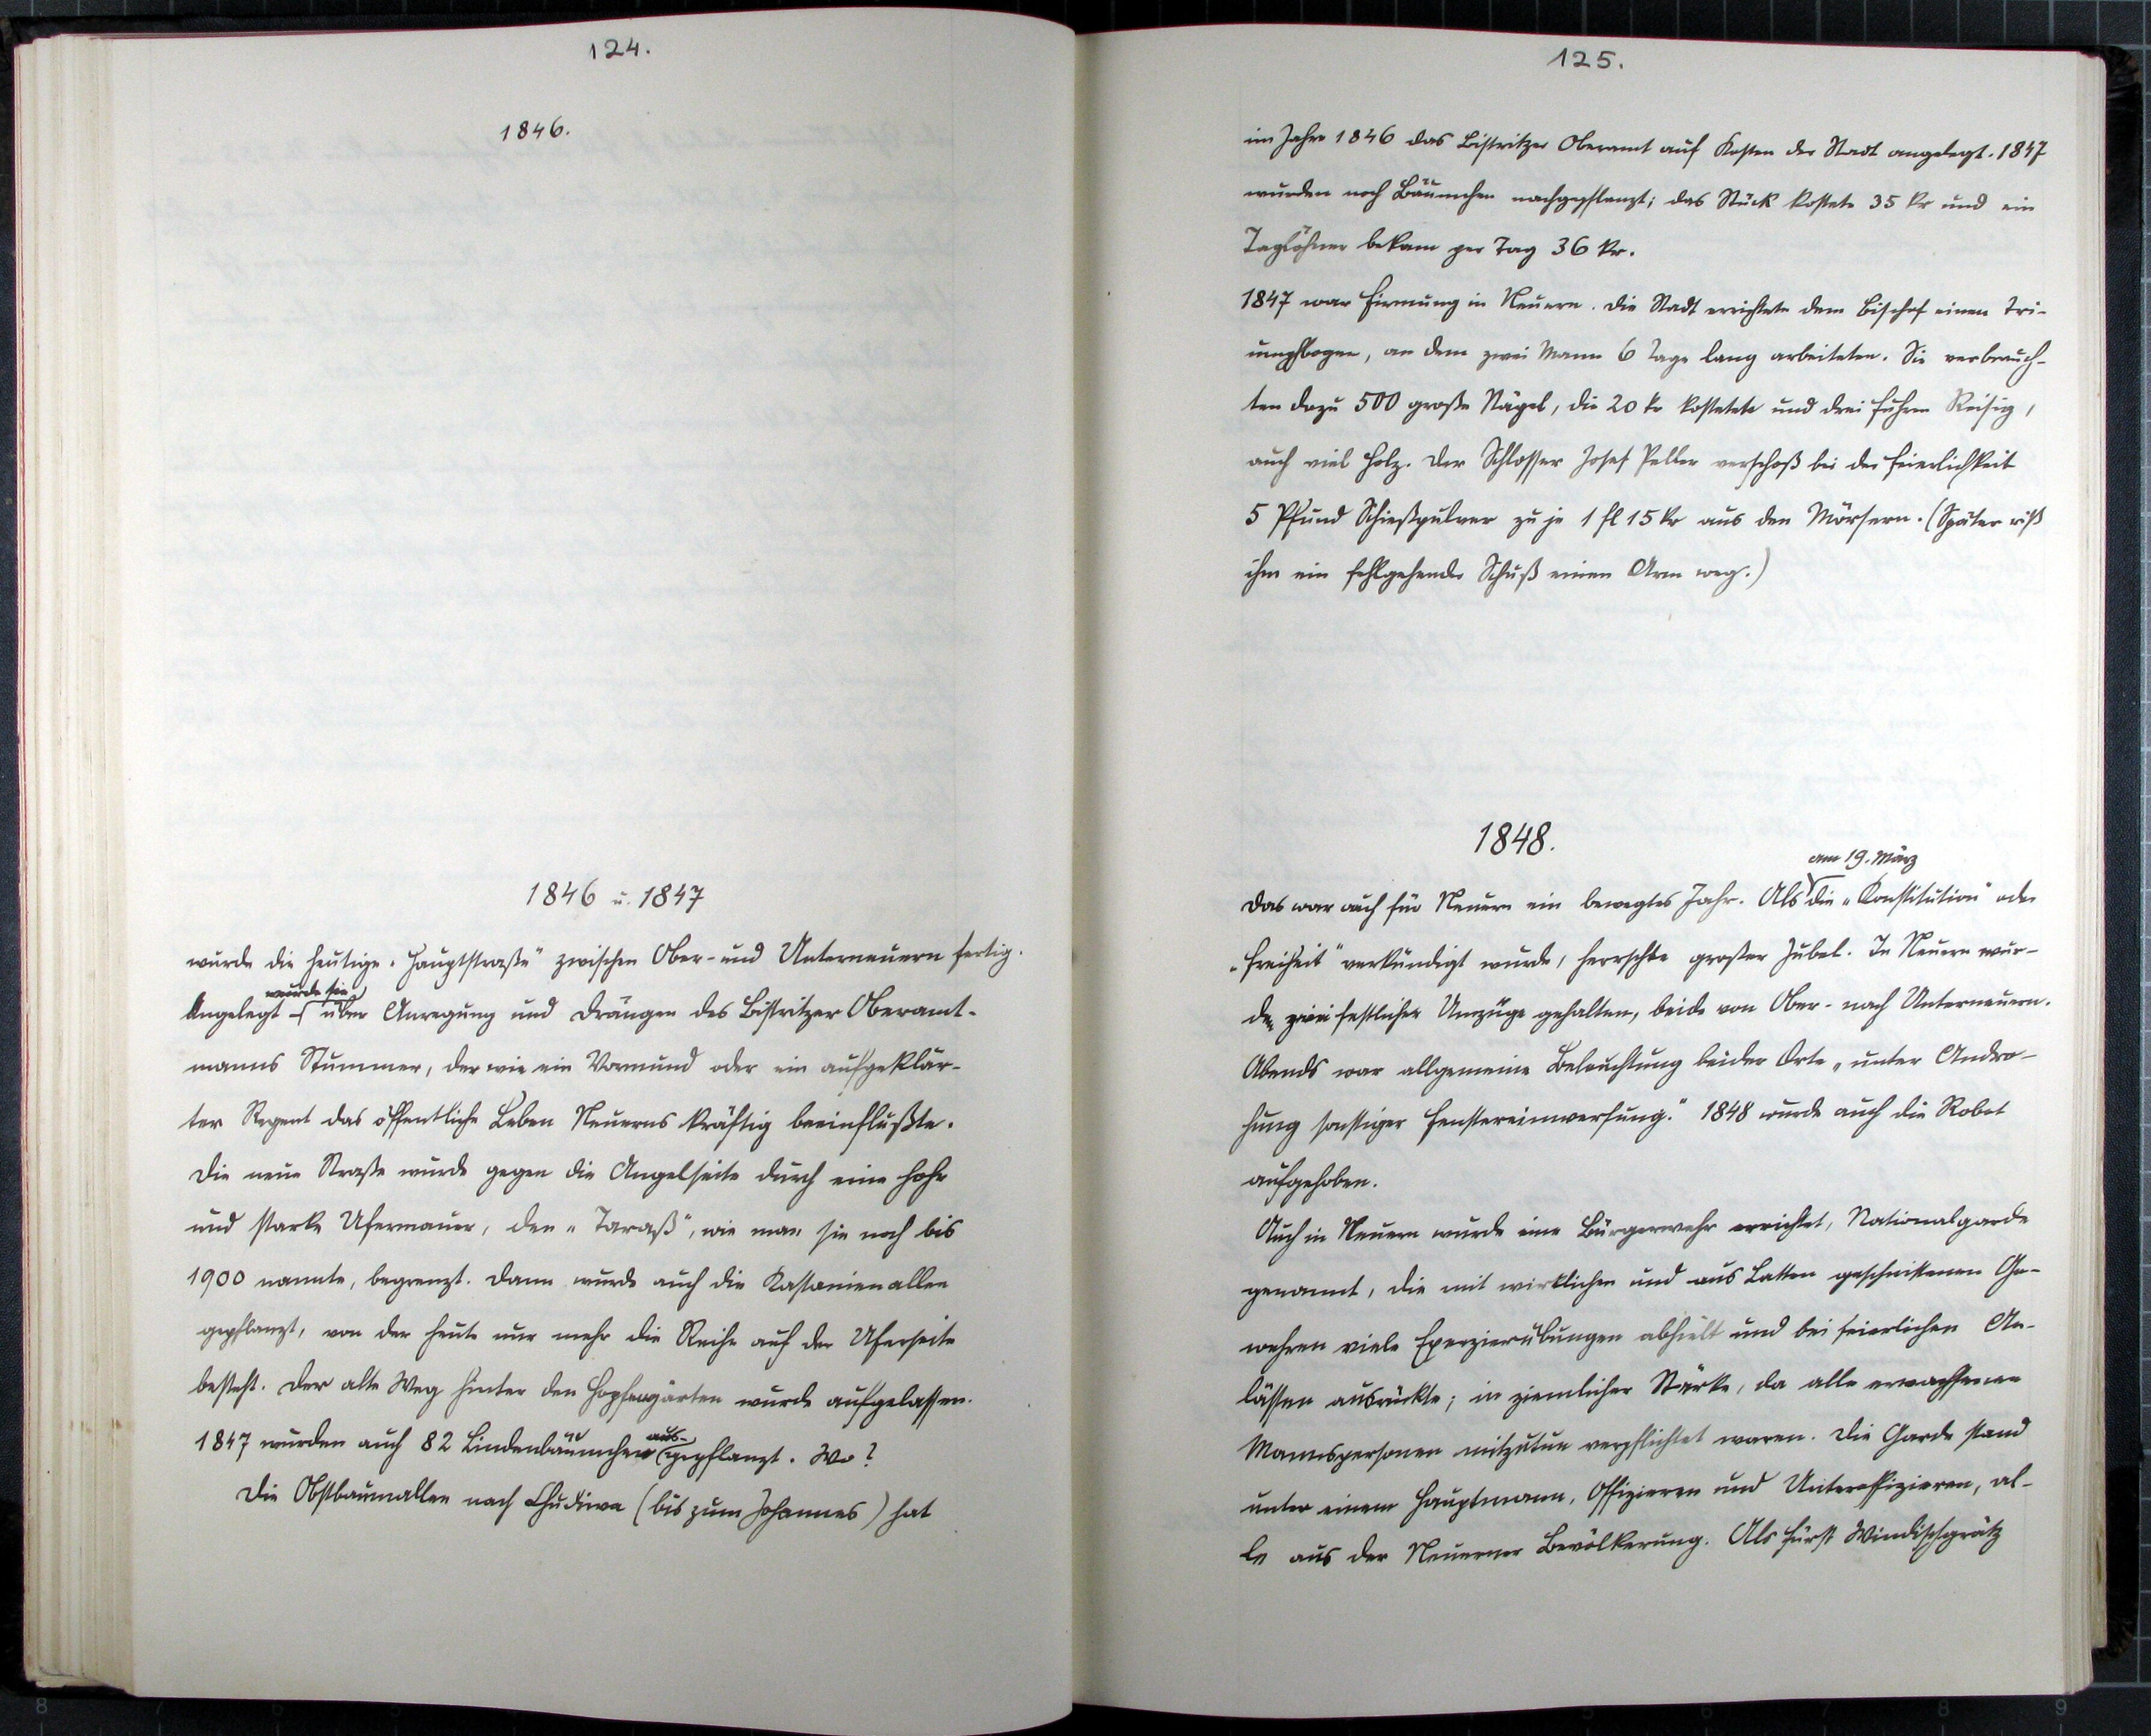 124.
1846.
1846 u. 1847
wurde die heutige „Hauptstraße" zwischen Ober- und Unterneuern fertig.
wurde sie
Angelegt über Anregung und Drängen des Bistritzer Oberamt-
manns Stummer, der wie ein Vormund oder ein aufgeklär-
ter Regent das öffentliche Leben Neuerns kräftig beeinflußte.
Die neue Straße wurde gegen die Angelseite durch eine hohe
und starke Ufermauer, den „Taraß", wie man sie noch bis
1900 nannte, begrenzt. Dann wurde auch die Kastanienallee
gepflanzt, von der heute nur mehr die Reihe auf der Uferseite
besteht. Der alte Weg hinter den Hopfengärten wurde aufgelassen.
aus-
1847 wurden auch 82 Lindenbäumchen gepflanzt. Wo?
Die Obstbaumallee nach Chudiwa (bis zum Johannes) hat
125.
im Jahre 1846 das Bistritzer Oberamt auf Kosten der Stadt angelegt. 1847
wurden noch Bäumchen nachgepflanzt; das Stück kostete 35 kr und ein
Taglöhner bekam per Tag 36 kr.
1847 war Firmung in Neuern. Die Stadt errichtete dem Bischof einen Tri-
umpfbogen, an dem zwei Mann 6 Tage lang arbeiteten. Sie verbrauch-
ten dazu 500 große Nägel, die 20 kr kostetete und drei Fuhren Reisig,
auch viel Holz. Der Schlosser Josef Peller verschoß bei der Feierlichkeit
5 Pfund Schießpulver zu je 1 fl 15 kr aus den Mörsern. (Später riß
ihm ein fehlgehender Schuß einen Arm weg.)
1848.
am 19. März
Das war auch für Neuern ein bewegtes Jahr. Als die „Konstitution" oder
„Freiheit" verkündigt wurde, herrschte großer Jubel. In Neuern wur-
den zwei festlicher Umzüge gehalten, beide von Ober- nach Unterneuern.
Abends war allgemeine Beleuchtung beider Orte „unter Andro-
hung sonstiger Fenstereinwerfung." 1848 wurde auch die Robot
aufgehoben.
Auch in Neuern wurde eine Bürgerwehr errichtet, Nationalgarde
genannt, die mit wirklichen und aus Latten geschnittenen Ge-
wehren viele Exerzierübungen abhielt und bei feierlichen An-
lässen ausrückte; in ziemlicher Stärke, da alle erwachsenen
Mannspersonen mitzutun verpflichtet waren. Die Garde stand
unter einem Hauptmann, Offizieren und Unteroffizieren, al-
le aus der Neuerner Bevölkerung. Als Fürst Windischgrätz
8
8
9